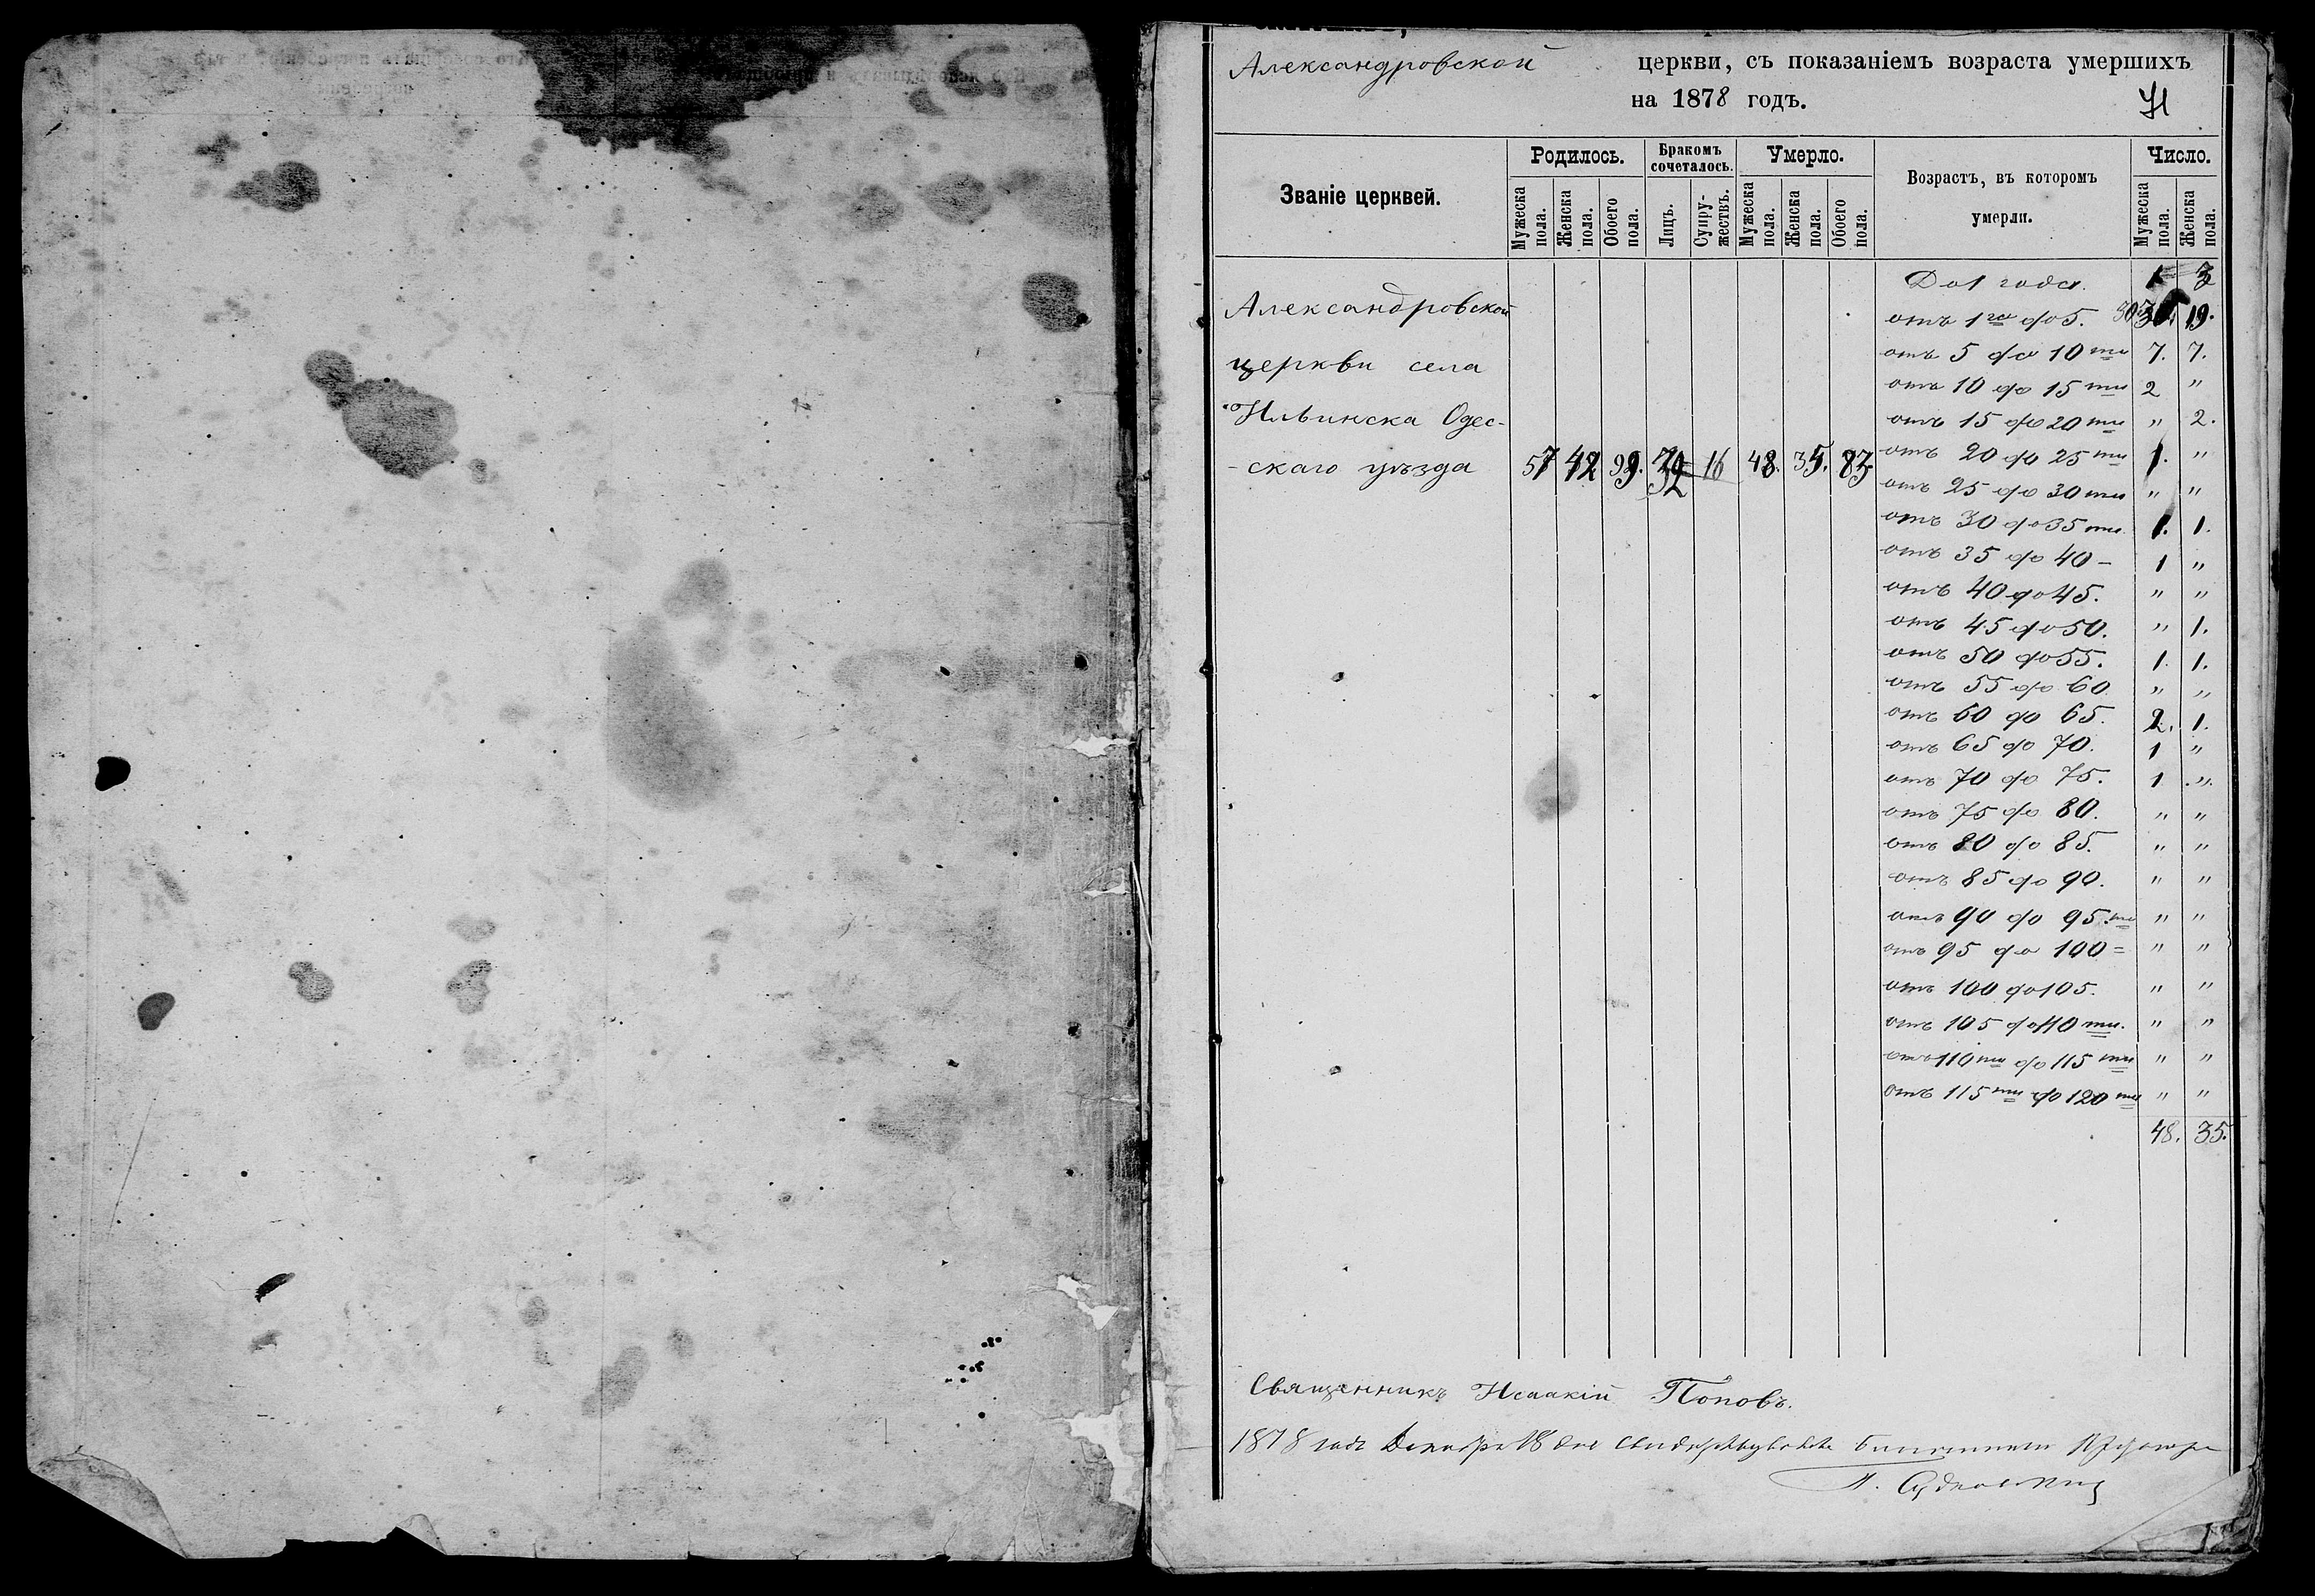 Александровской церкви, съ показаніемъ возраста умершихъ
на 1878 годъ.
Званіе церквей.
Родилось.
Бракомъ сочеталось.
Умерло.
Возрастъ, въ которомъ умерли.
Число.
Мужеска пола.
Женска пола.
Обоего пола.
Лицъ.
Супру-жествъ.
Мужеска пола.
Женска пола.
Обоего пола.
Мужеска пола.
Женска пола.
Александровской
церкви села
Ильинска Одес-
-скаго уѣзда 57 42 99. 32 16 48. 35. 83.
До 1 года. 1 3
отъ 1го до 5. 30 19.
отъ 5 до 10ти 7. 7.
отъ 10 до 15ти 2 "
отъ 15 до 20ти " 2.
отъ 20 до 25ти 1. "
отъ 25 до 30ти " "
отъ 30 до 35ти 1. 1.
отъ 35 до 40 – 1 "
отъ 40 до 45. " "
отъ 45 до 50. " 1.
отъ 50 до 55. 1. 1.
отъ 55 до 60 " "
отъ 60 до 65. 2. 1.
отъ 65 до 70. 1 "
отъ 70 до 75. 1 "
отъ 75 до 80. " "
отъ 80 до 85. " "
отъ 85 до 90. " "
отъ 90 до 95.ти " "
отъ 95 до 100 = " "
отъ 100 до 105. " "
отъ 105 до 110ти. " "
отъ 110ти до 115ти " "
отъ 115ти до 120ти " "
48. 35.
Священникъ Исаакій Поповъ.
1878 года Декабря 18 дня